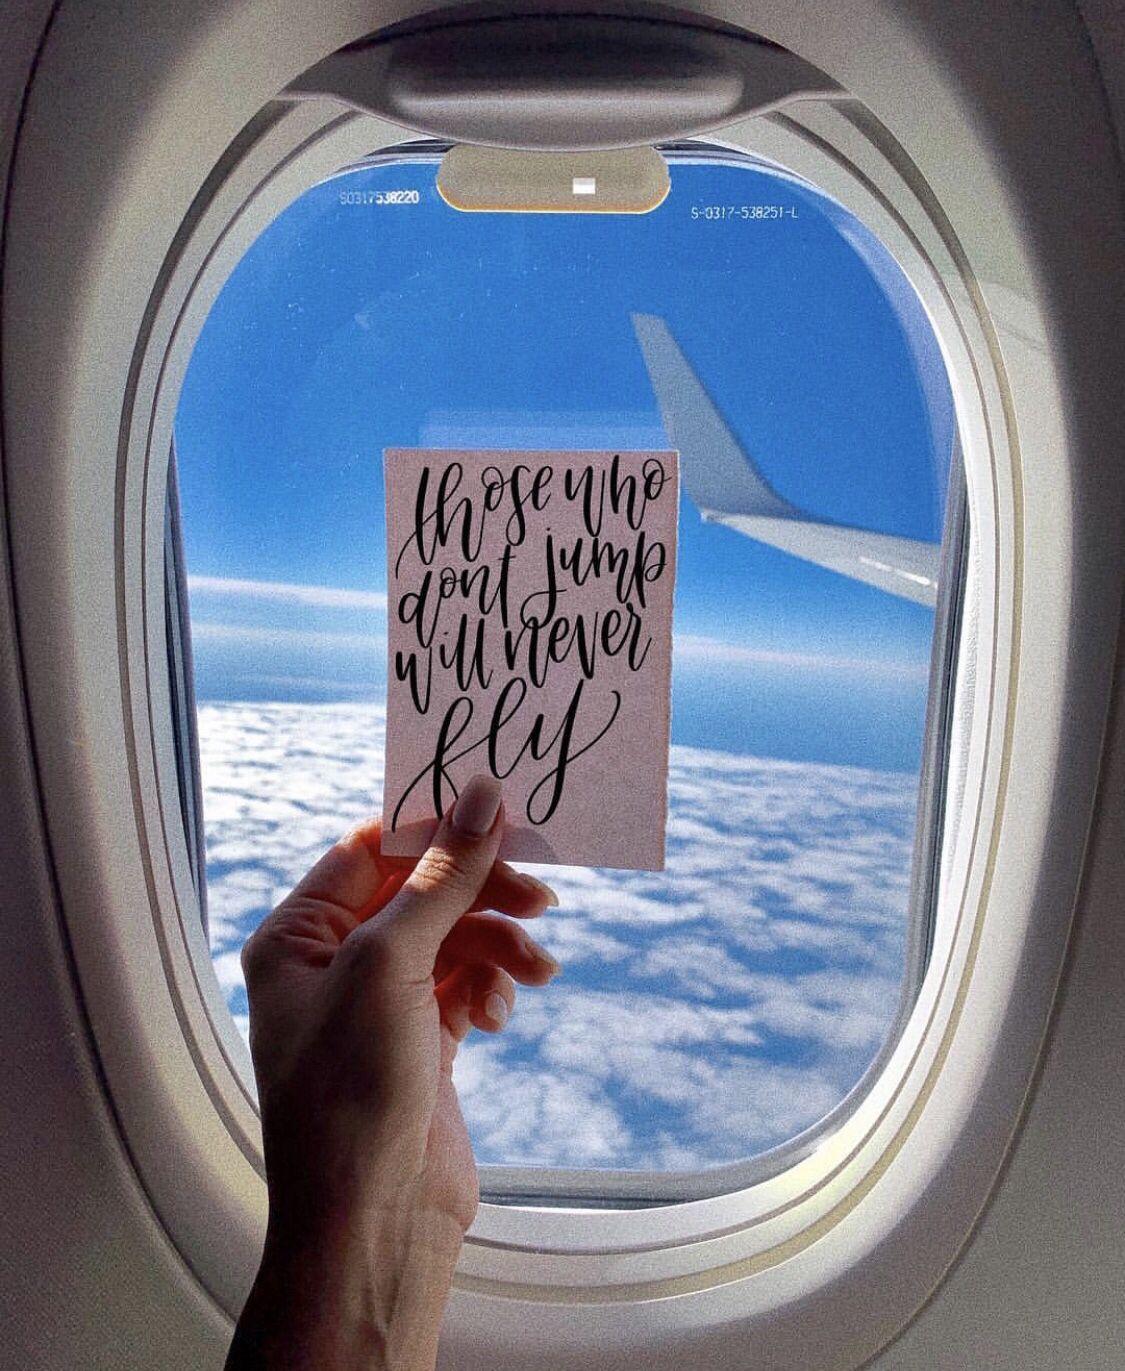 S0317538220
S-0317-538251-L
those who
dont jump
will never
fly